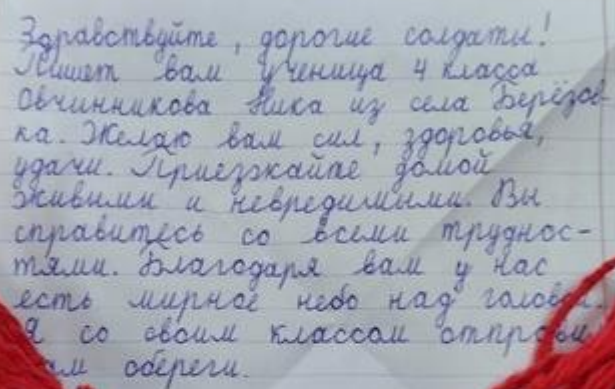 Здравствуйте, дорогие солдаты!
Пишет вам ученица 4 класса
Овчинникова Ника из села Берёзов-
ка. Желаю вам сил, здоровья,
удачи. Приезжайте домой
живыми и невредимыми. Вы
справитесь со всеми труднос-
тями. Благодаря вам у нас
есть мирное небо над головой.
Я со своим классом
обереги.